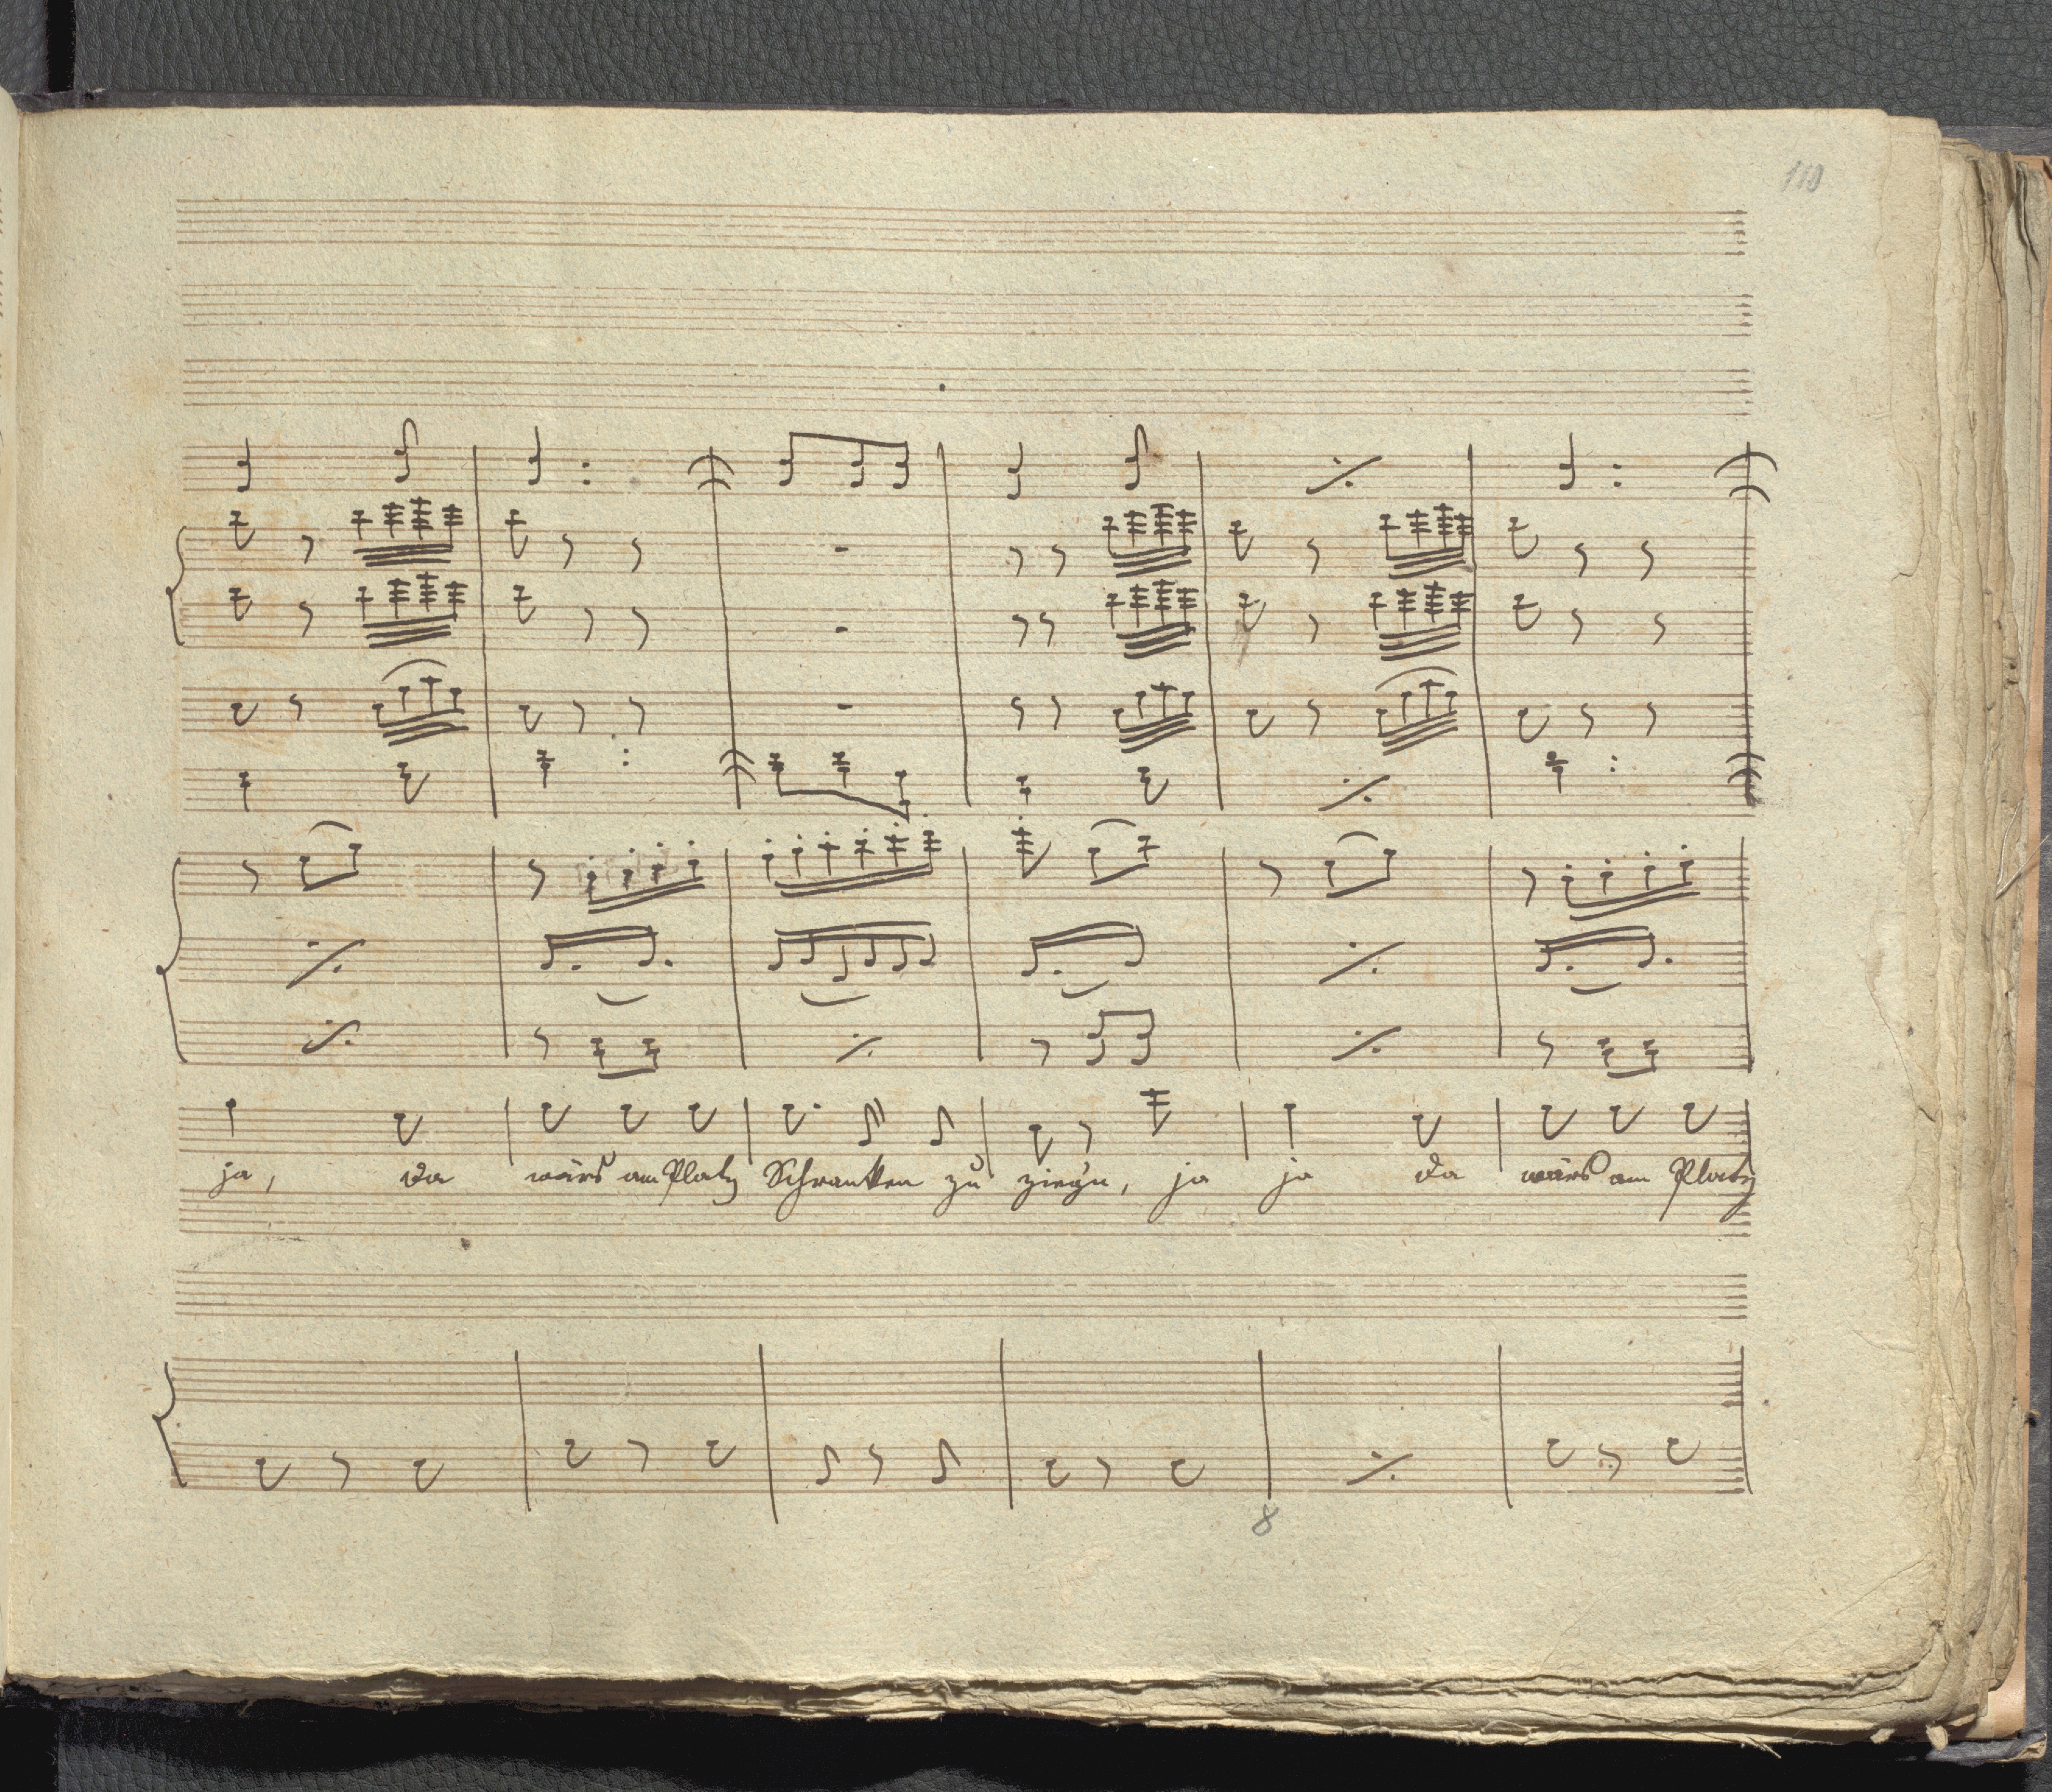 110
ja, da wärs am Platz Schranken zu ziehn, ja ja da wärs am Platz
8